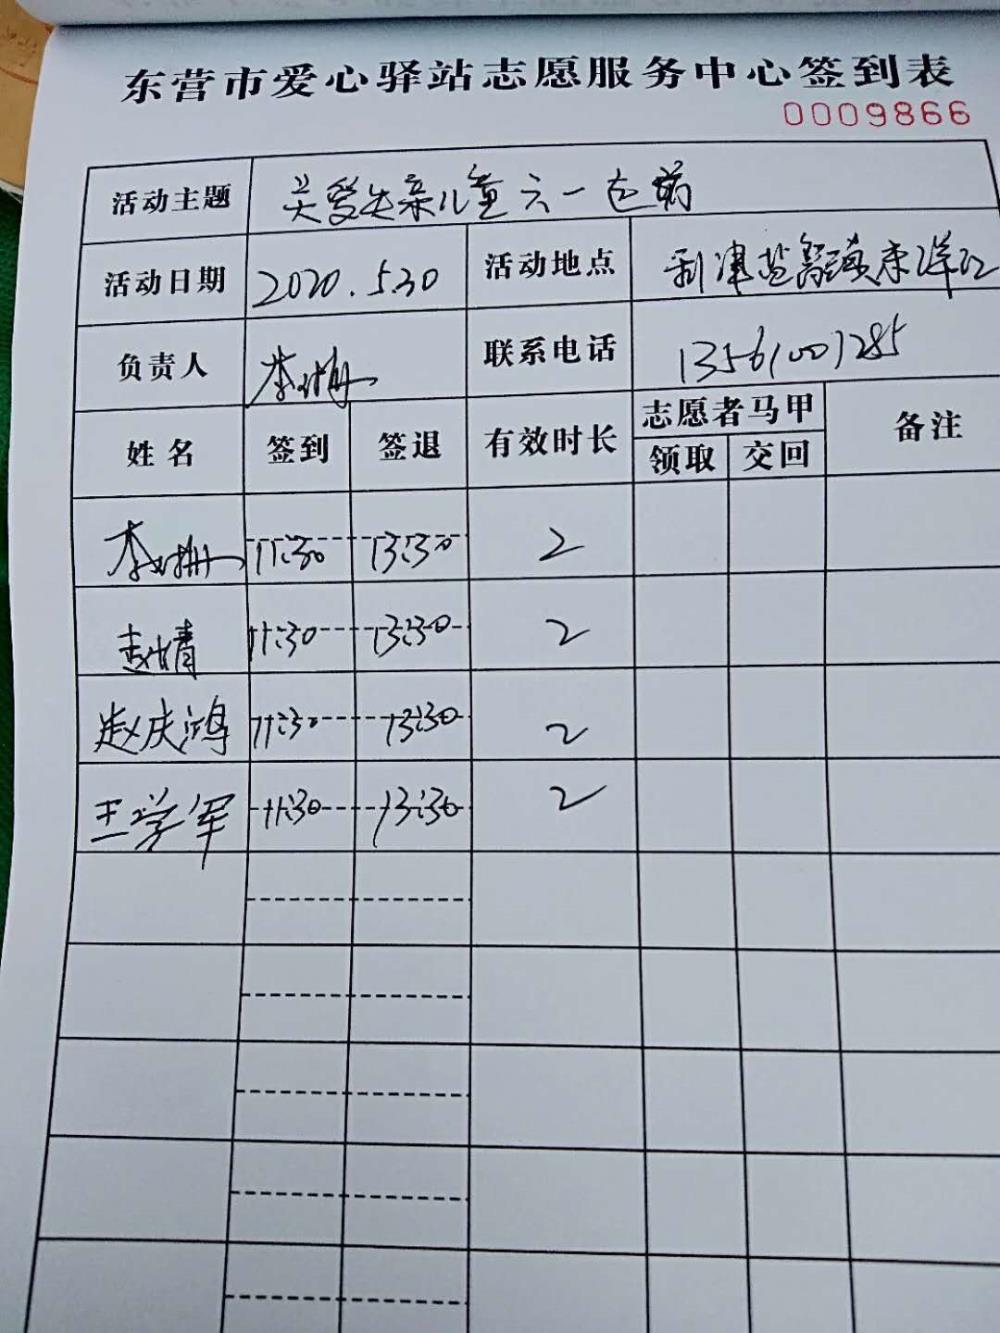 东营市爱心驿站志愿服务中心签到表
0009866
活动主题 关爱失亲儿童六一
活动日期 2020.5.30 活动地点 利津盐窝镇
负责人 李 联系电话 13561001285
姓名 签到 签退 有效时长 志愿者马甲 备注
领取 交回
李 11:30 13:30 2
赵 11:30 13:30 2
赵庆鸿 11:30 13:30 2
王学军 11:30 13:30 2